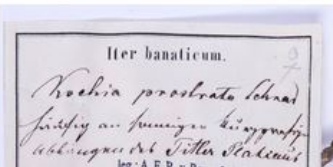 Iter banaticum.
Kochia prostrata Schrad
häufig an sonnigen
Abhängen des Titler Plateaus
leg. A. F. P.